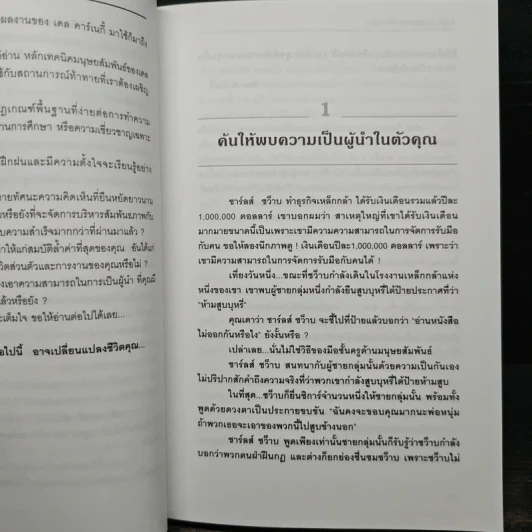 ผลงานของ เดล คาร์เนกี้ มาใช้ก็มาถึง
อ่าน หลักเทคนิคมนุษยสัมพันธ์ของเดล
กับสถานการณ์ท้าทายที่เราต้องเผชิญ
เกณฑ์พื้นฐานที่ง่ายต่อการทำความ
านการศึกษา หรือความเชี่ยวชาญเฉพาะ
ฝึกฝนและมีความตั้งใจจะเรียนรู้อย่าง
ายทัศนะความคิดเห็นที่ยืนหยัดยาวนาน
หรือยังที่จะจัดการบริหารสัมพันธภาพกับ
บความสำเร็จมากกว่าที่ผ่านมาแล้ว ?
าให้แก่สมบัติล้ำค่าที่สุดของคุณ อันได้แก่
วิตส่วนตัวและการงานของคุณหรือไม่ ?
งเอาความสามารถในการเป็นผู้นำ ที่คุณมี
แล้วหรือยัง ?
ะเต็มใจ ขอให้อ่านต่อไปได้เลย...
อไปนี้ อาจเปลี่ยนแปลงชีวิตคุณ...
1
ค้นให้พบความเป็นผู้นำในตัวคุณ
ชาร์ลส์ ชว๊าบ ทำธุรกิจเหล็กกล้า ได้รับเงินเดือนรวมแล้วปีละ
1,000,000 ดอลลาร์ เขาบอกผมว่า สาเหตุใหญ่ที่เขาได้รับเงินเดือน
มากมายขนาดนี้เป็นเพราะเขามีความความสามารถในการจัดการรับมือ
กับคน ขอให้ลองนึกภาพดู ! เงินเดือนปีละ1,000,000 ดอลลาร์ เพราะว่า
เขามีความสามารถในการจัดการรับมือกับคนได้ !
เที่ยงวันหนึ่ง...ขณะที่ชว๊าบกำลังเดินในโรงงานเหล็กกล้าแห่ง
หนึ่งของเขา เขาพบผู้ชายกลุ่มหนึ่งกำลังยืนสูบบุหรี่ใต้ป้ายประกาศที่ว่า
“ห้ามสูบบุหรี่”
คุณเดาว่า ชาร์ลส์ ชว๊าบ จะชี้ไปที่ป้ายแล้วบอกว่า “อ่านหนังสือ
ไม่ออกกันหรือไง” ยังงั้นหรือ ?
เปล่าเลย...นั่นไม่ใช่วิธีของมือชั้นครูด้านมนุษยสัมพันธ์
ชาร์ลส์ ชว๊าบ สนทนากับผู้ชายกลุ่มนั้นด้วยความเป็นกันเอง
ไม่ปริปากสักคำถึงความจริงที่ว่าพวกเขากำลังสูบบุหรี่ใต้ป้ายห้ามสูบ
ในที่สุด...ชว๊าบก็ยื่นซิการ์จำนวนหนึ่งให้ชายกลุ่มนั้น พร้อมทั้ง
พูดด้วยดวงตาเป็นประกายขบขัน “ฉันคงจะขอบคุณมากนะพ่อหนุ่ม
ถ้าพวกเธอจะเอาของพวกนี้ไปสูบข้างนอก”
ชาร์ลส์ ชว๊าบ พูดเพียงเท่านั้นชายกลุ่มนั้นก็รับรู้ว่าชว๊าบกำลัง
บอกว่าพวกตนฝ่าฝืนกฎ และต่างก็ยกย่องชื่นชมชว๊าบ เพราะชว๊าบไม่